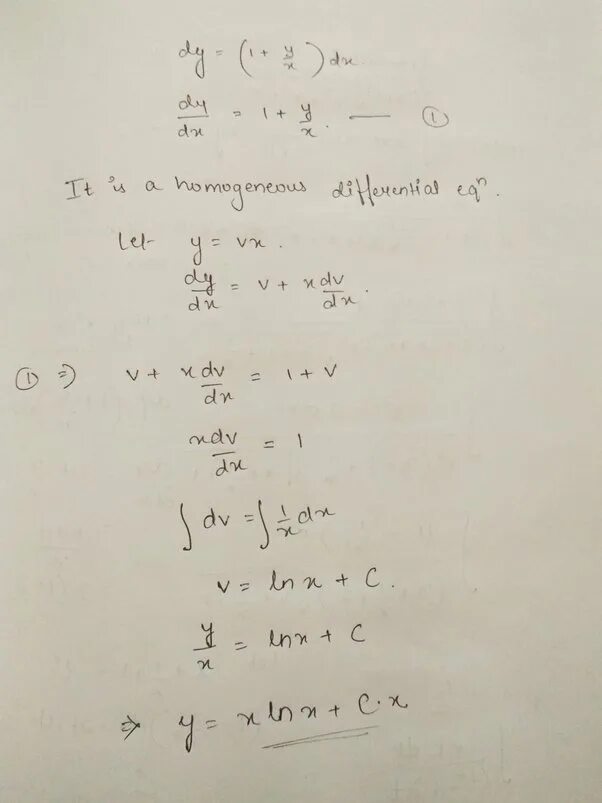 dy = (1 + y/x) dx.
dy/dx = 1 + y/x. — ①
It is a homogeneous differential eqⁿ.
Let y = vx.
dy/dx = v + x dv/dx.
① ⇒ v + x dv/dx = 1 + v
x dv/dx = 1
∫ dv = ∫ 1/x dx
v = ln x + C.
y/x = ln x + C
⇒ y = x ln x + C·x